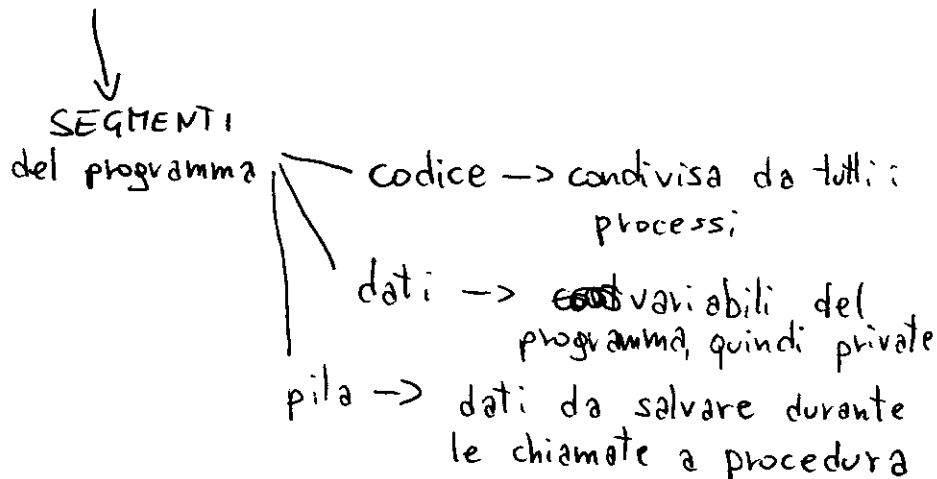 SEGMENTI
del programma
codice -> condivisa da tutti i
processi
dati -> variabili del
programma, quindi private
pila -> dati da salvare durante
le chiamate a procedura